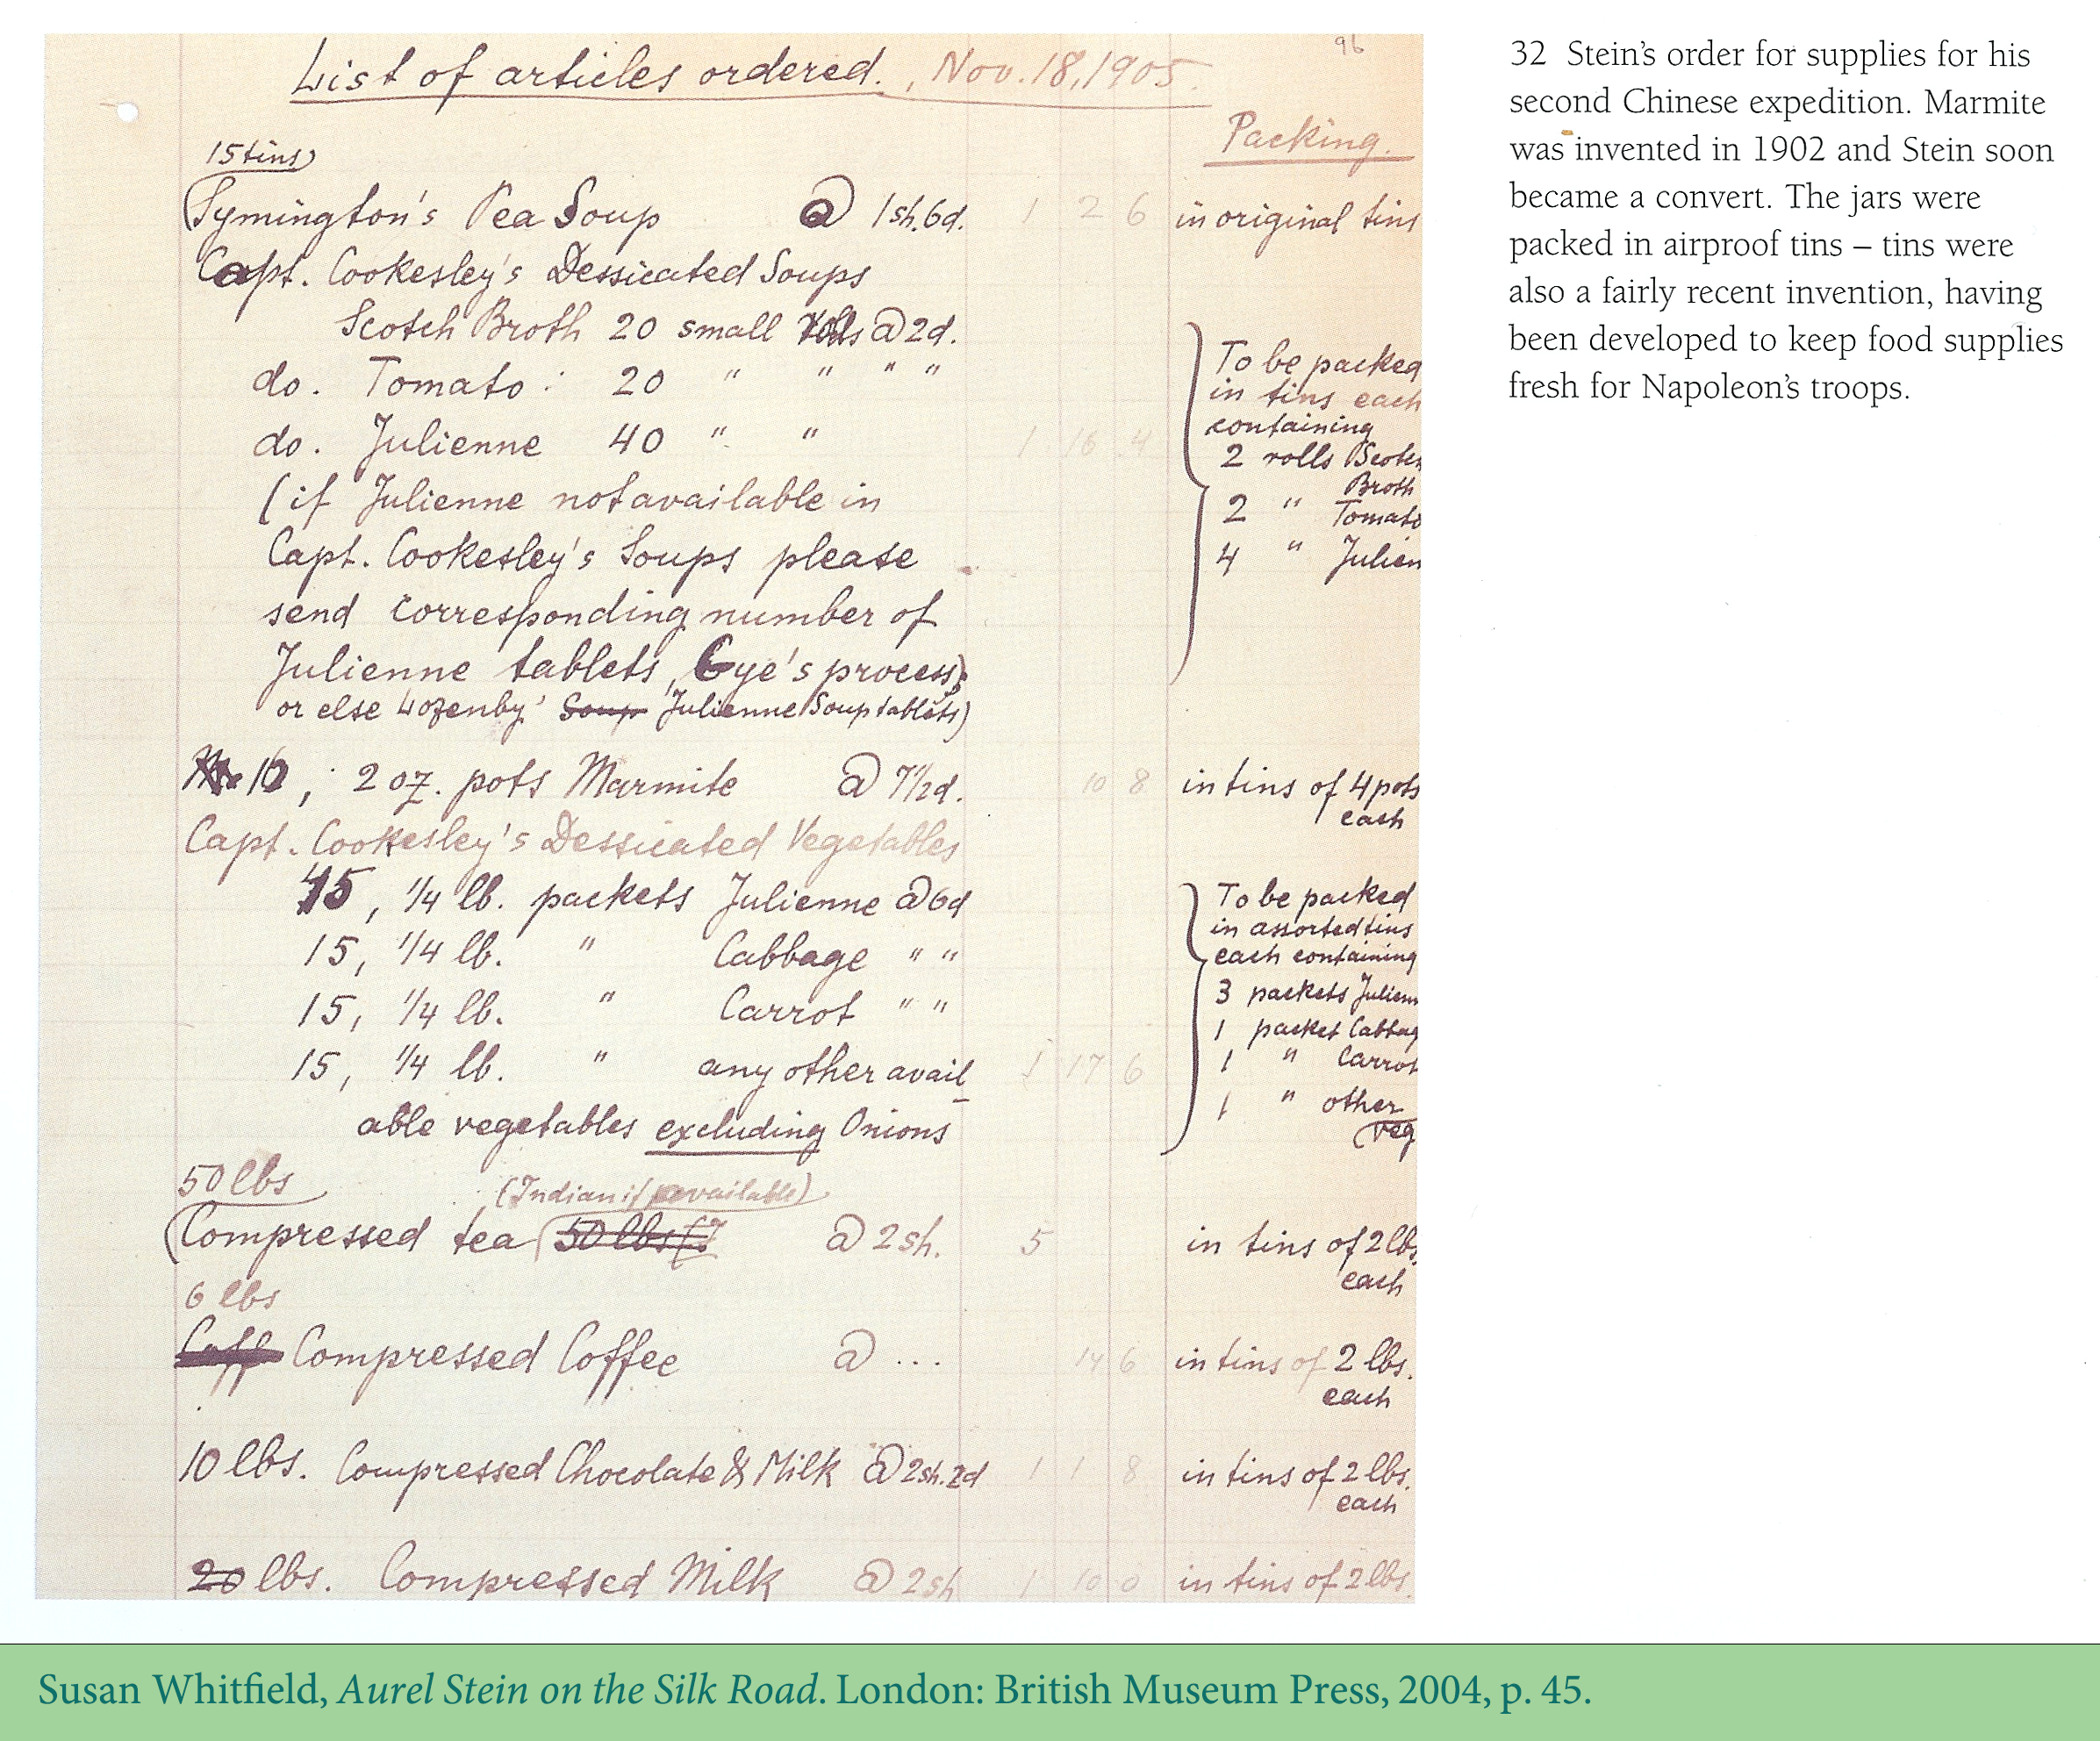 96
List of articles ordered., Nov. 18, 1905.
Packing.
15 tins
Symington's Pea Soup @ 1sh.6d. 1 2 6 in original tins
Capt. Cookesley's Dessicated Soups
Scotch Broth 20 small rolls @ 2d.
do. Tomato : 20 " " " "
do. Julienne 40 " " 1 16 4
(if Julienne not available in
Capt. Cookesley's Soups please
send corresponding number of
Julienne tablets, Gye's process;
or else Lozenby' Soup Julienne Soup tablets)
To be packed
in tins each
containing
2 rolls Scotch
Broth
2 " Tomato
4 " Julien
16, 2 oz. pots Marmite @ 7½d. 10 8 in tins of 4 pots
each
Capt. Cookesley's Dessicated Vegetables
45, 1/4 lb. packets Julienne @ 6d
15, 1/4 lb. " Cabbage " "
15, 1/4 lb. " Carrot " "
15, 1/4 lb. " any other avail 1 17 6
able vegetables excluding Onions
To be packed
in assorted tins
each containing
3 packets Julienn
1 packet Cabbag
1 " Carrot
1 " other
veg
50 lbs
(Indian if available)
Compressed tea 50 lbs @ 2 sh. 5 in tins of 2 lbs.
each
6 lbs
Coff Compressed Coffee @ ... 14 6 in tins of 2 lbs.
each
10 lbs. Compressed Chocolate & Milk @ 2sh.2d 1 1 8 in tins of 2 lbs.
each
20 lbs. Compressed Milk @ 2sh 1 10 0 in tins of 2 lbs.
32 Stein's order for supplies for his
second Chinese expedition. Marmite
was invented in 1902 and Stein soon
became a convert. The jars were
packed in airproof tins – tins were
also a fairly recent invention, having
been developed to keep food supplies
fresh for Napoleon's troops.
Susan Whitfield, Aurel Stein on the Silk Road. London: British Museum Press, 2004, p. 45.